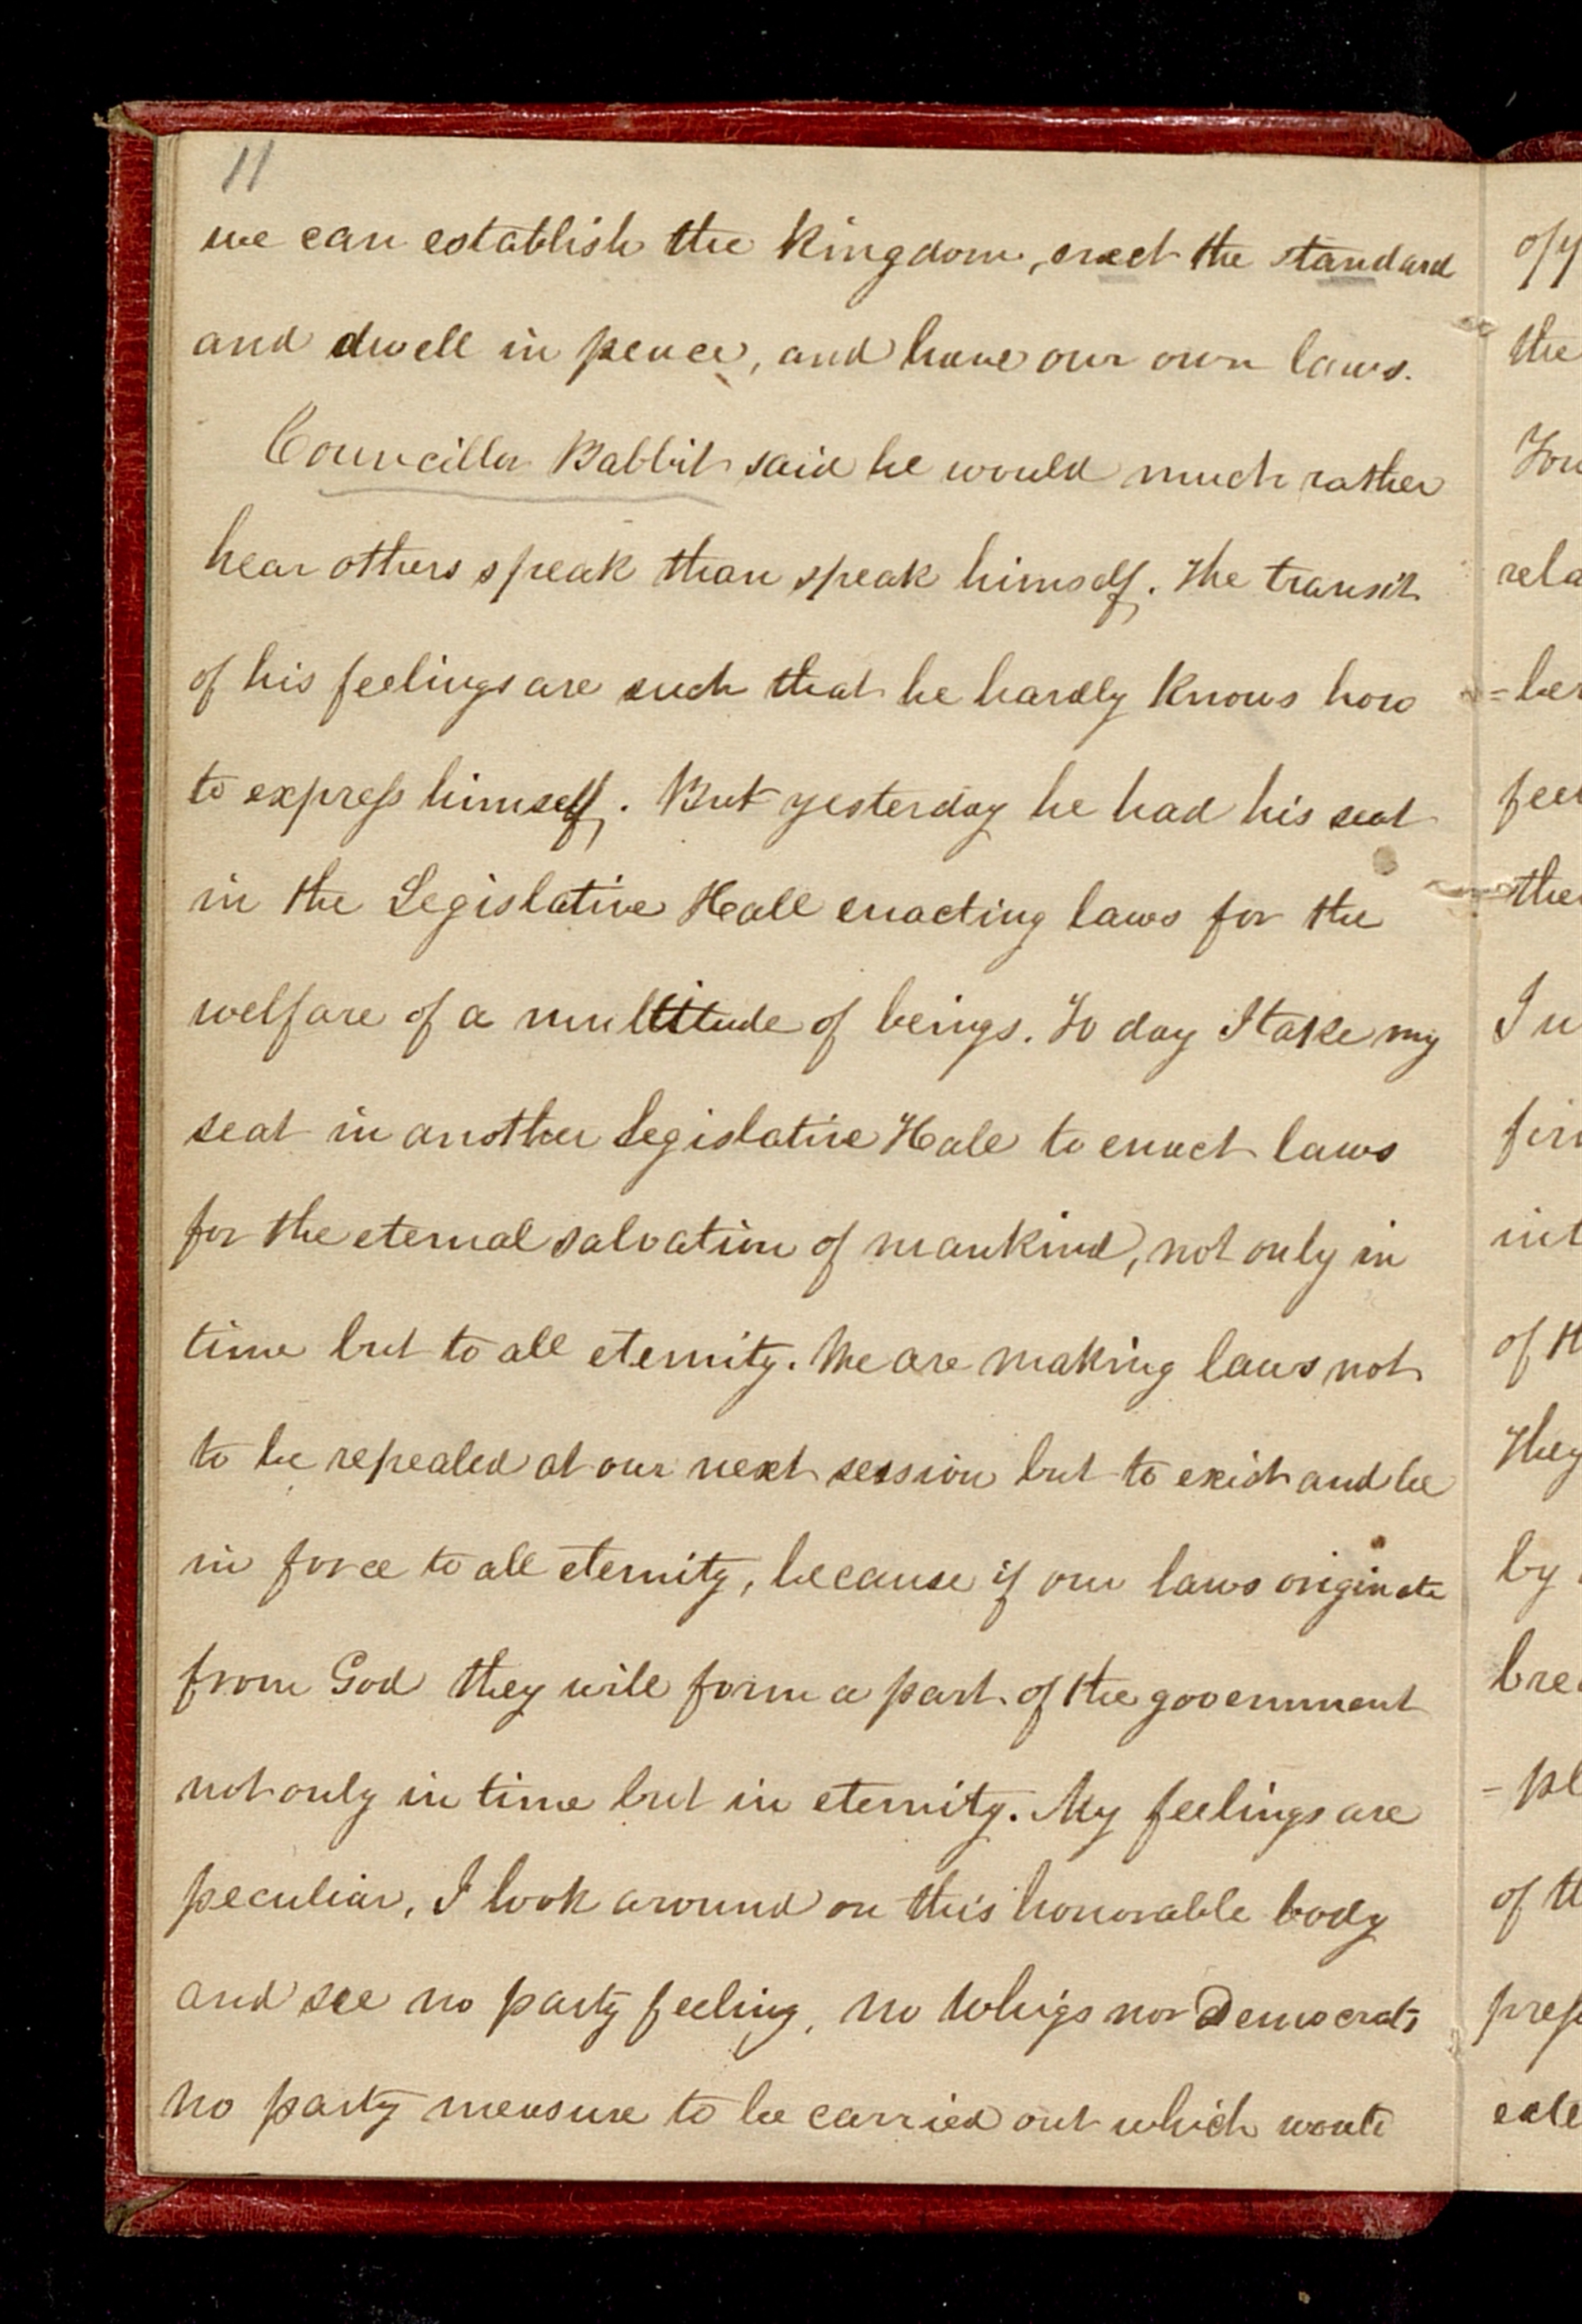 11
we can establish the kingdom, erect the standard
and dwell in peace, and have our own laws.
Councillor Babbit said he would much rather
hear others speak than speak himself. The transit
of his feelings are such that he hardly knows how
to express himself. But yesterday he had his seat
in the Legislative Hall enacting laws for the
welfare of a multitude of beings. To day I take my
seat in another Legislative Hall to enact laws
for the eternal salvation of mankind, not only in
time but to all eternity. We are making laws not
to be repealed at our next session but to exist and be
in force to all eternity, because if our laws originate
from God they will form a part of the government
not only in time but in eternity. My feelings are
peculiar, I look around on this honorable body
and see no party feeling, no Whigs nor Democrats
no party measure to be carried out which
the
rela
=ber
feel
the
I
of
They
by
of